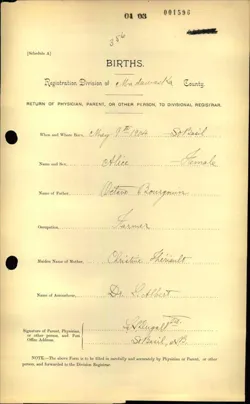 01 03 001596
386
[Schedule A]
BIRTHS.
Registration Division of Madawaska County.
RETURN OF PHYSICIAN, PARENT, OR OTHER PERSON, TO DIVISIONAL REGISTRAR.
When and Where Born, May 9th 1904 St Basil
Name and Sex, Alice Female
Name of Father, Octave Bourgoin
Occupation, Farmer
Maiden Name of Mother, Christine Theriault
Name of Accoucheur, Dr.
Signature of Parent, Physician,
or other person, and Post
Office Address.
St Basil, N.B.
NOTE.—The above Form is to be filled in carefully and accurately by Physician or Parent, or other
person, and forwarded to the Division Registrar.